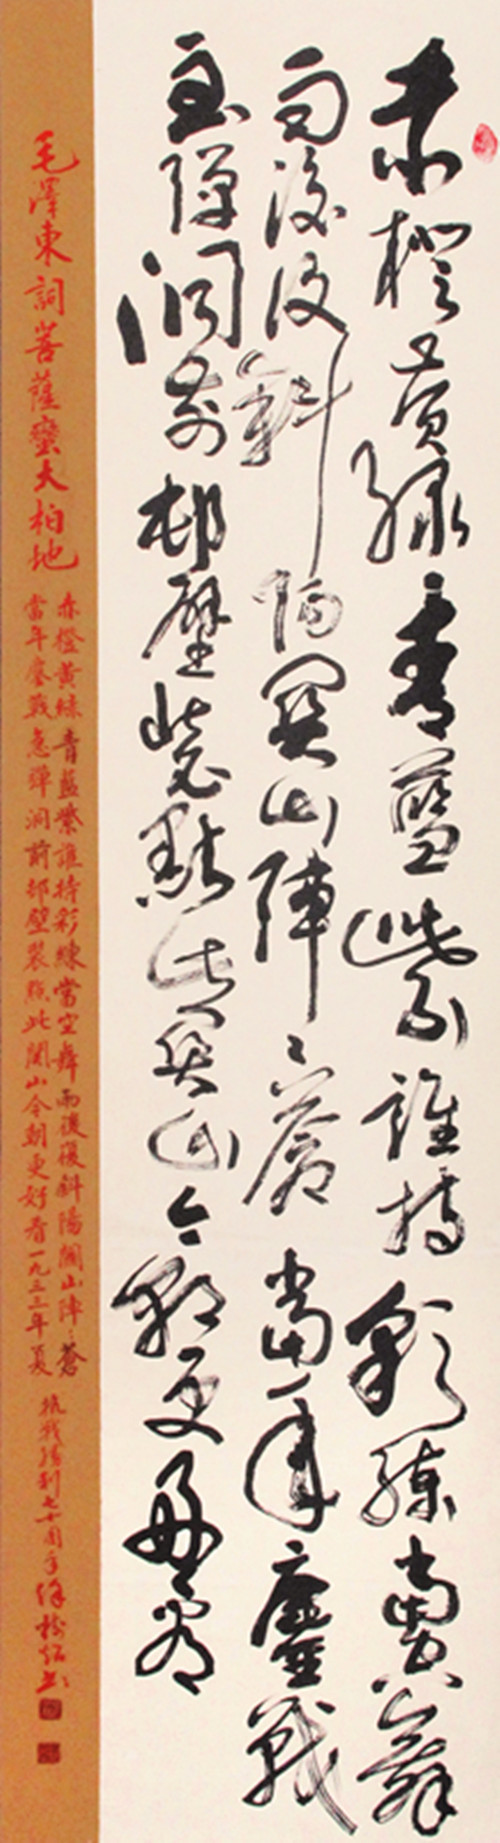 赤橙黃綠青藍紫誰持彩練當空舞
雨後復斜陽關山陣〻蒼當年鏖戰
急彈洞前邨壁裝點此關山今朝更好看
毛澤東詞菩薩蠻大柏地
赤橙黃綠青藍紫誰持彩練當空舞雨後復斜陽關山陣〻蒼
當年鏖戰急彈洞前邨壁裝點此關山今朝更好看一九三三年夏
抗戰勝利七十周年徐